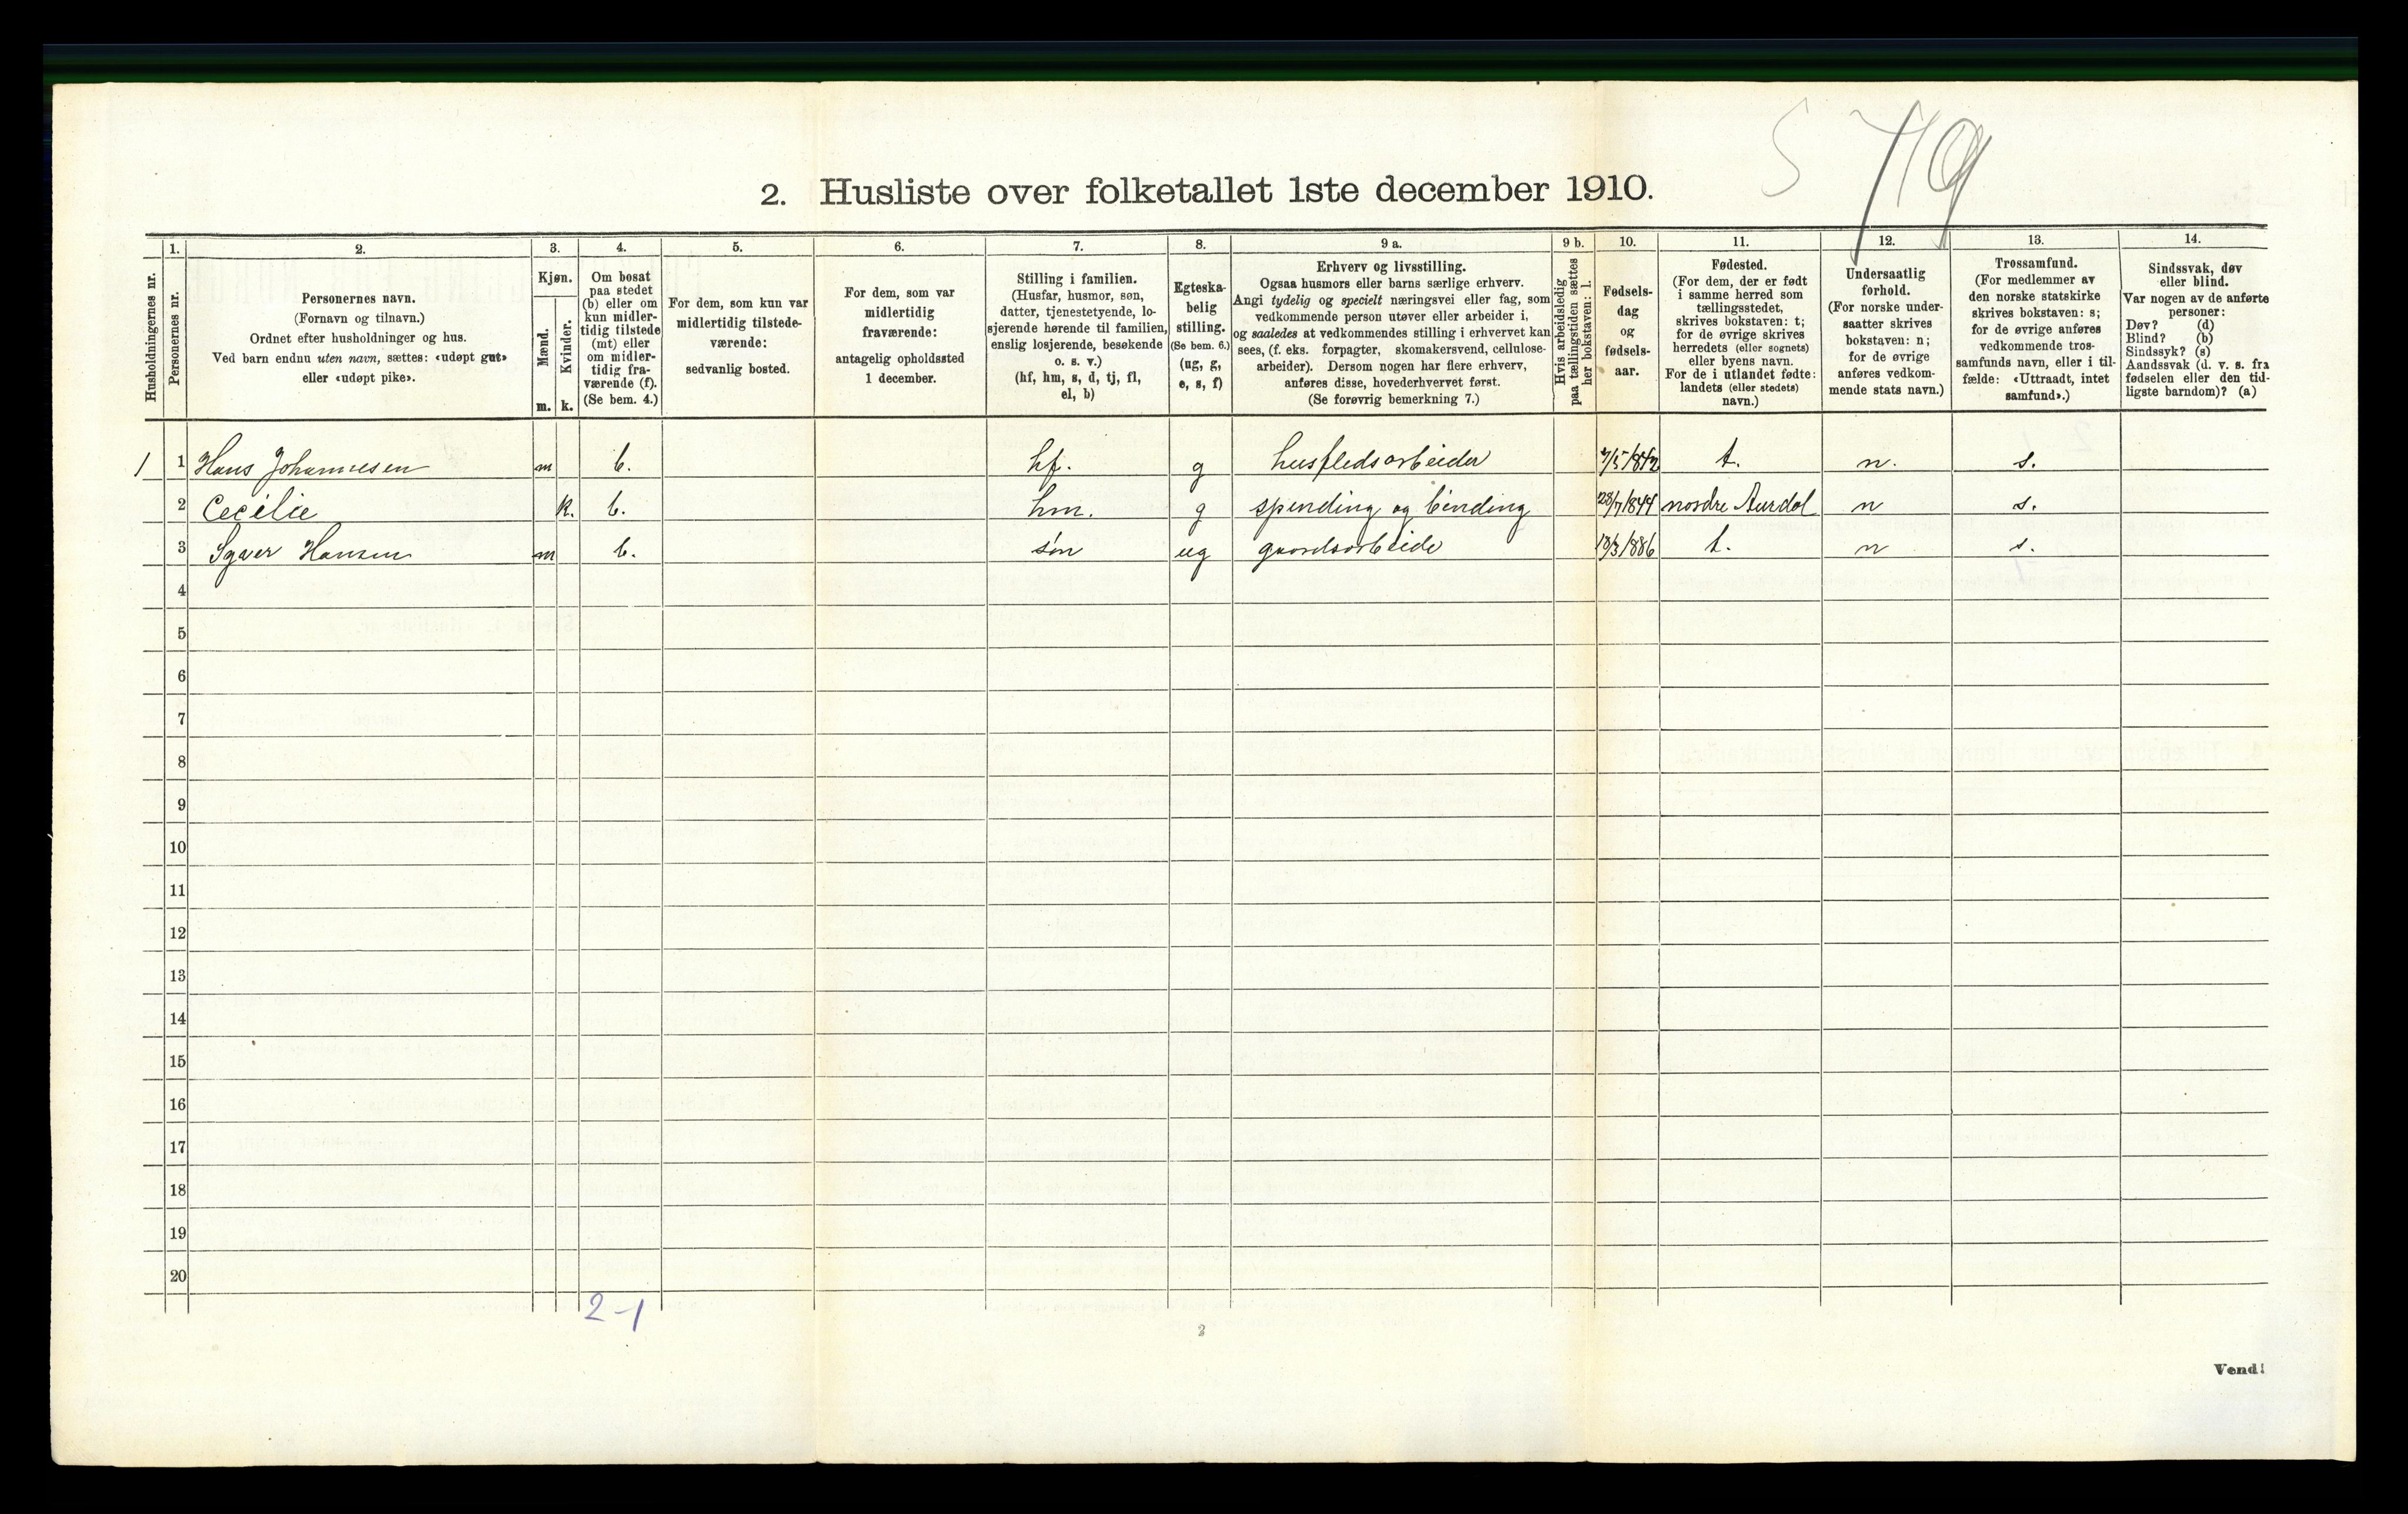 2. Husliste over folketallet 1ste december 1910.
1. 2. 3. 4. 5. 6. 7. 8. 9 a. 9 b. 10. 11. 12. 13. 14.
Husholdningernes nr.
Personernes nr.
Personernes navn.
(Fornavn og tilnavn.)
Ordnet efter husholdninger og hus.
Ved barn endnu uten navn, sættes: «udøpt gut»
eller «udøpt pike».
Kjøn.
Mænd.
Kvinder.
m. k.
Om bosat
paa stedet
(b) eller om
kun midler-
tidig tilstede
(mt) eller
om midler-
tidig fra-
værende (f).
(Se bem. 4.)
For dem, som kun var
midlertidig tilstede-
værende:
sedvanlig bosted.
For dem, som var
midlertidig
fraværende:
antagelig opholdssted
1 december.
Stilling i familien.
(Husfar, husmor, søn,
datter, tjenestetyende, lo-
sjerende hørende til familien,
enslig losjerende, besøkende
o. s. v.)
(hf, hm, s, d, tj, fl,
el, b)
Egteska-
belig
stilling.
(Se bem. 6.)
(ug, g,
e, s, f)
Erhverv og livsstilling.
Ogsaa husmors eller barns særlige erhverv.
Angi tydelig og specielt næringsvei eller fag, som
vedkommende person utøver eller arbeider i,
og saaledes at vedkommendes stilling i erhvervet kan
sees, (f. eks. forpagter, skomakersvend, cellulose-
arbeider). Dersom nogen har flere erhverv,
anføres disse, hovederhvervet først.
(Se forøvrig bemerkning 7.)
Hvis arbeidsledig
paa tællingstiden sættes
her bokstaven: l.
Fødsels-
dag
og
fødsels-
aar.
Fødested.
(For dem, der er født
i samme herred som
tællingsstedet,
skrives bokstaven: t;
for de øvrige skrives
herredets (eller sognets)
eller byens navn.
For de i utlandet fødte:
landets (eller stedets)
navn.)
Undersaatlig
forhold.
(For norske under-
saatter skrives
bokstaven: n;
for de øvrige
anføres vedkom-
mende stats navn.)
Trossamfund.
(For medlemmer av
den norske statskirke
skrives bokstaven: s;
for de øvrige anføres
vedkommende tros-
samfunds navn, eller i til-
fælde: «Uttraadt, intet
samfund».)
Sindssvak, døv
eller blind.
Var nogen av de anførte
personer:
Døv? (d)
Blind? (b)
Sindssyk? (s)
Aandssvak (d. v. s. fra
fødselen eller den tid-
ligste barndom)? (a)
1 1 Hans Johannesen m b. hf. g husflidsarbeider 7/5 1842 t. n. s.
2 Cecilie k. b. hm. g spinding og binding 28/7 1844 nordre Aurdal n s.
3 Syver Hansen m b. søn ug gaardsarbeide 18/3 1886 t. n s.
4
5
6
7
8
9
10
11
12
13
14
15
16
17
18
19
20
2-1
2
Vend!